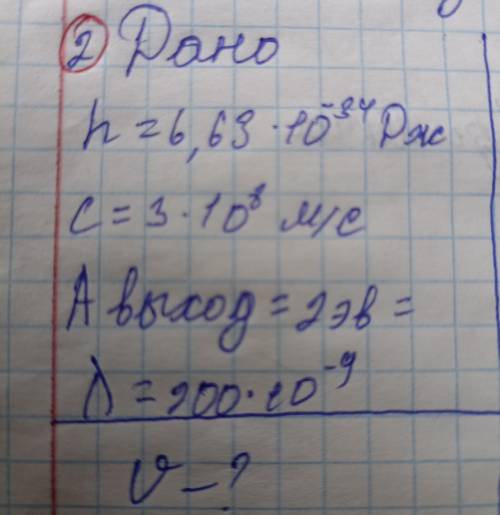 ② Дано
h = 6,63 · 10⁻³⁴ Дж
c = 3 · 10⁸ м/с
A выход = 2 эв =
λ = 200 · 10⁻⁹
υ - ?